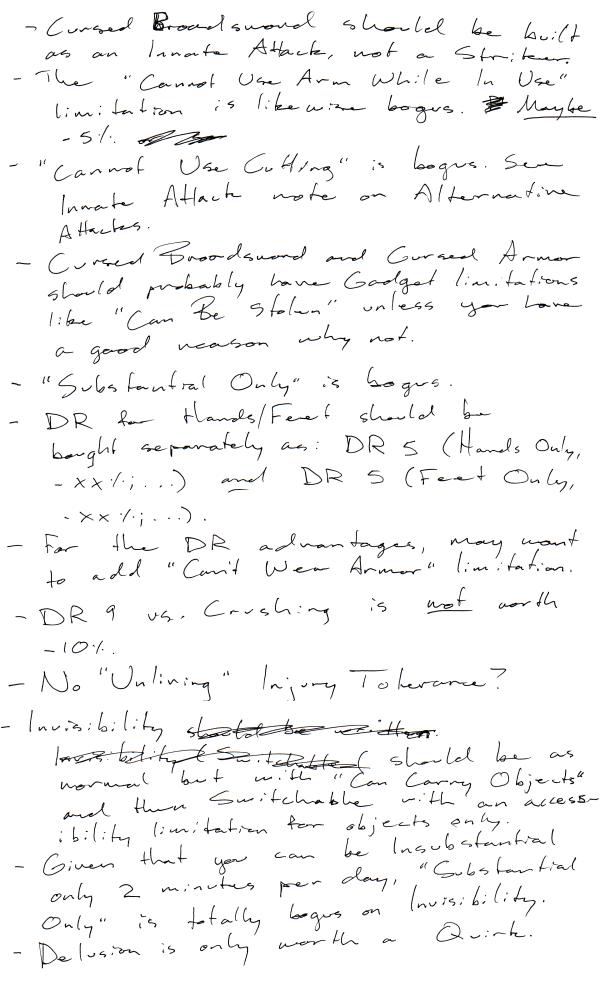 - Cursed Broadsword should be built
as an Innate Attack, not a Striker.
- The "Cannot Use Arm While In Use"
limitation is likewise bogus. Maybe
-5%.
- "Cannot Use Cutting" is bogus. See
Innate Attack note on Alternative
Attacks.
- Cursed Broadsword and Cursed Armor
should probably have Gadget limitations
like "Can Be Stolen" unless you have
a good reason why not.
- "Substantial Only" is bogus.
- DR for Hands/Feet should be
bought separately as: DR 5 (Hands Only,
-XX%; ...) and DR 5 (Feet Only,
-XX%; ...).
- For the DR advantages, may want
to add "Can't Wear Armor" limitation.
- DR 9 vs. Crushing is not worth
-10%.
- No "Unliving" Injury Tolerance?
- Invisibility should be written
Invisibility (Switchable( should be as
normal but with "Can Carry Objects"
and then Switchable with an access-
ibility limitation for objects only.
- Given that you can be Insubstantial
only 2 minutes per day, "Substantial
Only" is totally bogus on Invisibility.
- Delusion is only worth a Quirk.